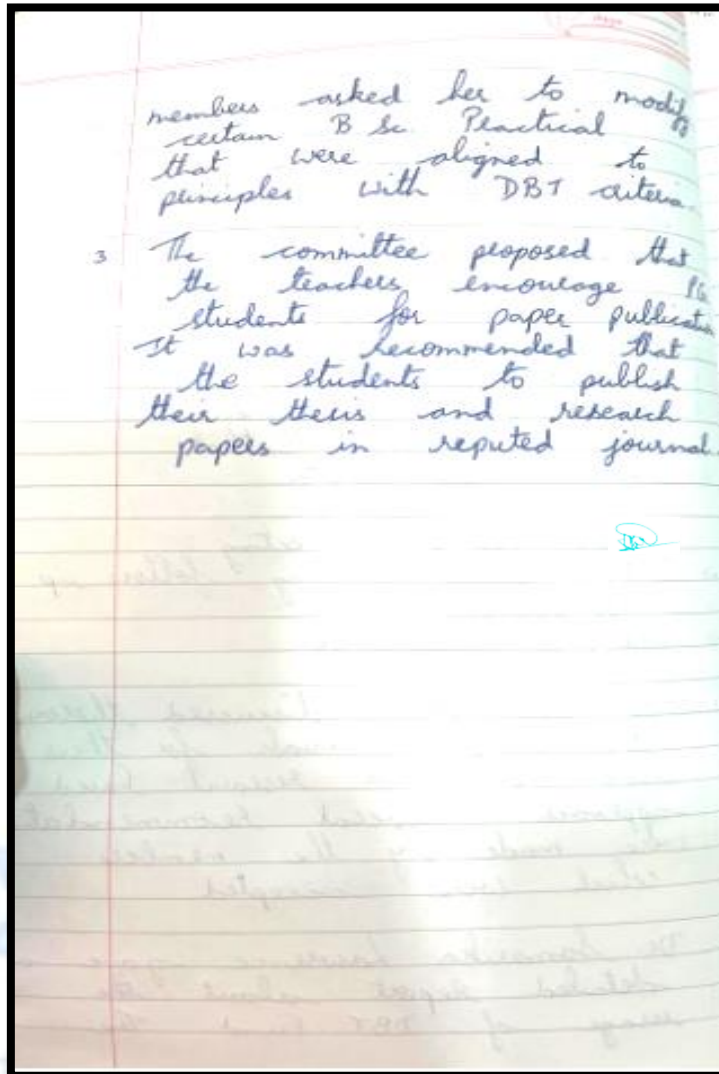 members asked her to modify
certain B Sc Practical
that were aligned to
principles with DBT criteria
3 The committee proposed that
the teachers encourage PG
students for paper publicatio
It was recommended that
the students to publish
their thesis and research
papers in reputed journal.